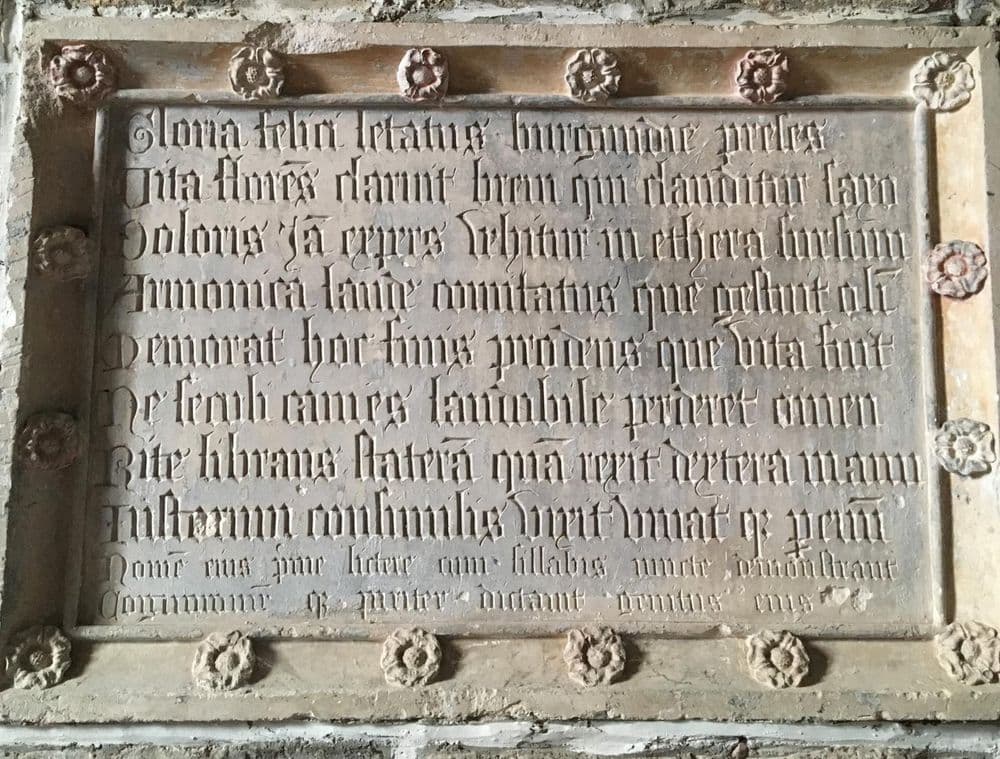 Gloria felici letatus burgundie preses
Vita florēs claruit breui qui clauditur saxo
Doloris Jā expers Vehitur in ethera sursum
Armonicā laude comitatus que gestiut olī
Memorat hoc funus prodens que Vita fuit
Ne seculi cāmies laudabile perderet omen
Rite librans staterā quā rexit dextera manu
Iustorum consimilis Vixit Viuat q; perēni
Nomē eius prime lictere cum sillabis iuncte demonstrant
Cognomnē q; pariter dictauit genitus eius